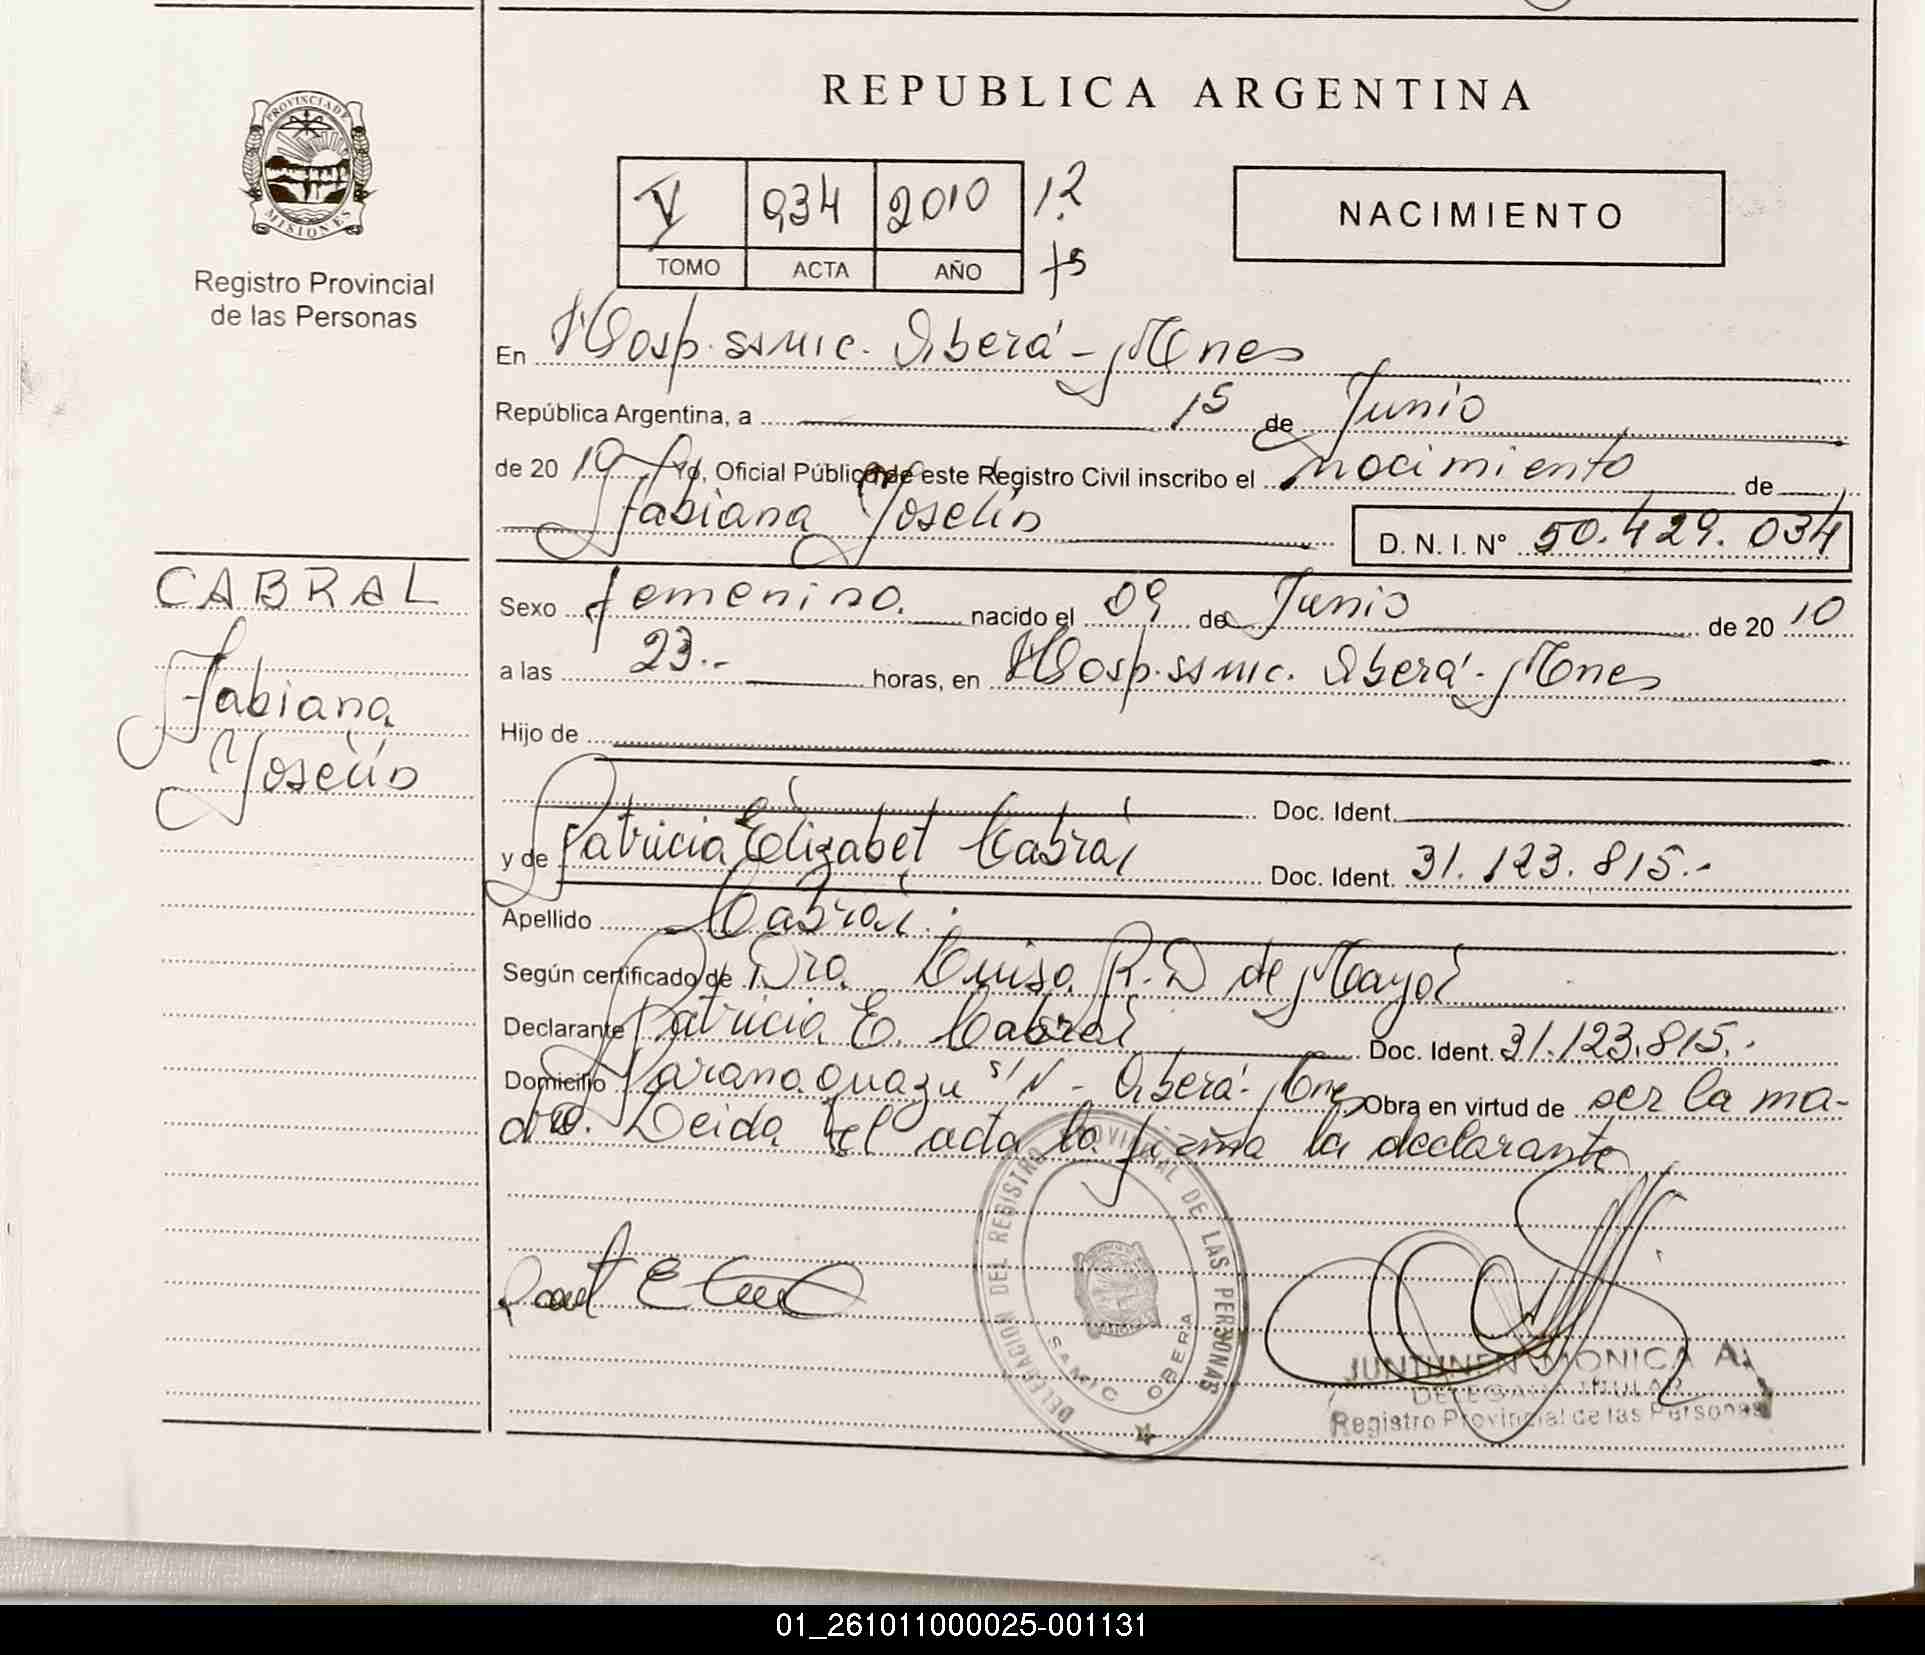 REPUBLICA ARGENTINA
PROVINCIA DE MISIONES
Registro Provincial
de las Personas
V 934 2010 12
TOMO ACTA AÑO
NACIMIENTO
En Hosp. ssmic. Oberá - Mnes
República Argentina, a 15 de Junio
de 20 10 Yo, Oficial Público de este Registro Civil inscribo el nacimiento de
Fabiana Yoselin D. N. I. Nº 50.429.034
CABRAL
Fabiana
Yoselin
Sexo femenino. nacido el 09 de Junio de 20 10
a las 23.- horas, en Hosp. ssmic. Oberá - Mnes
Hijo de
Doc. Ident.
y de Patricia Elizabet Cabral Doc. Ident. 31.123.815.-
Apellido Cabral.
Según certificado de Dra. Luisa R. D de Mayol
Declarante Patricia E. Cabral Doc. Ident. 31.123.815.-
Domicilio Parana guazu s/N - Oberá - Mnes Obra en virtud de ser la ma-
dre. Leida el acta la firma la declarante
DELEGACION DEL REGISTRO PROVINCIAL DE LAS PERSONAS
SAMIC OBERA
JUNTUNEN MONICA A.
DELEGADA TITULAR
Registro Provincial de las Personas
01_261011000025-001131